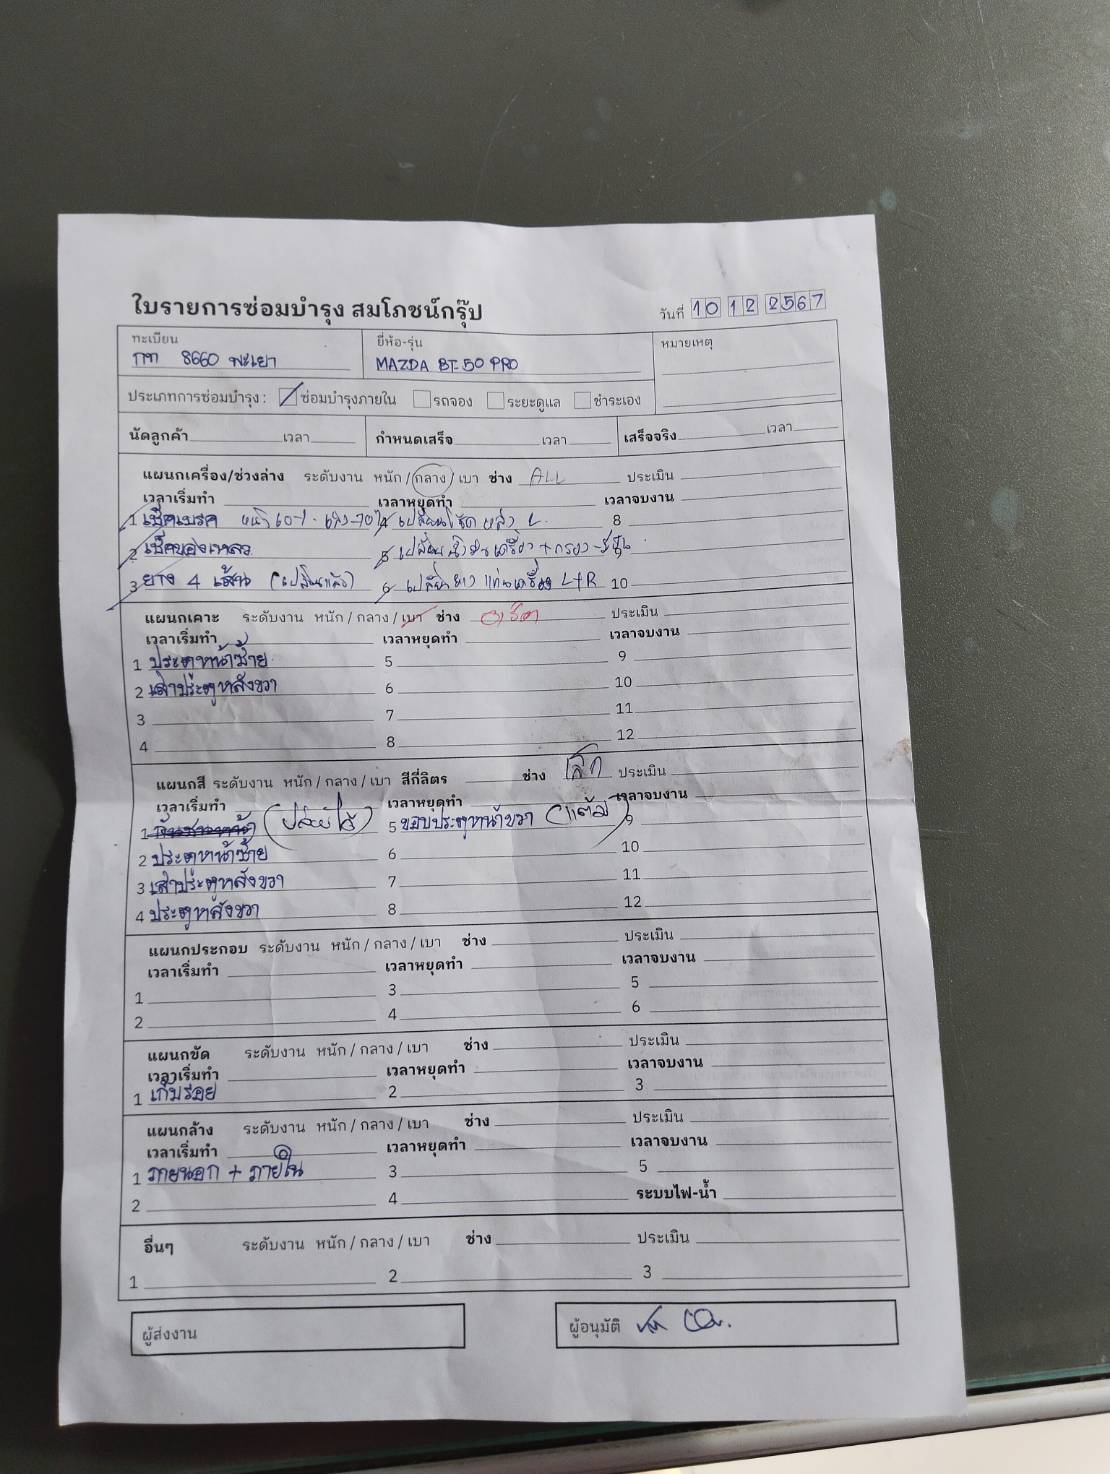 ใบรายการซ่อมบำรุง สมโภชน์กรุ๊ป
วันที่ 10 12 2567
ทะเบียน ยี่ห้อ-รุ่น หมายเหตุ
กท 8660 พะเยา MAZDA BT-50 PRO
ประเภทการซ่อมบำรุง : ซ่อมบำรุงภายใน รถจอง ระยะดูแล ชำระเอง
นัดลูกค้า เวลา กำหนดเสร็จ เวลา เสร็จจริง เวลา
แผนกเครื่อง/ช่วงล่าง ระดับงาน หนัก / กลาง / เบา ช่าง ALL ประเมิน
เวลาเริ่มทำ เวลาหยุดทำ เวลาจบงาน
1 เช็คเบรค 8
2 เช็คของเหลว 5 เปลี่ยนน้ำมันเครื่อง + กรอง
3 ยาง 4 เส้น (เปลี่ยนแล้ว) 6 เปลี่ยนยางแท่นเครื่อง L+R 10
แผนกเคาะ ระดับงาน หนัก / กลาง / เบา ช่าง ประเมิน
เวลาเริ่มทำ เวลาหยุดทำ เวลาจบงาน
1 ประตูหน้าซ้าย 5 9
2 เสาประตูหลังขวา 6 10
3 7 11
4 8 12
แผนกสี ระดับงาน หนัก / กลาง / เบา สีกี่ลิตร ช่าง เล็ก ประเมิน
เวลาเริ่มทำ เวลาหยุดทำ เวลาจบงาน
1 (ปล่อยไว้) 5 ขอบประตูหน้าขวา (แต้ม) 9
2 ประตูหน้าซ้าย 6 10
3 เสาประตูหลังขวา 7 11
4 ประตูหลังขวา 8 12
แผนกประกอบ ระดับงาน หนัก / กลาง / เบา ช่าง ประเมิน
เวลาเริ่มทำ เวลาหยุดทำ เวลาจบงาน
1 3 5
2 4 6
แผนกขัด ระดับงาน หนัก / กลาง / เบา ช่าง ประเมิน
เวลาเริ่มทำ เวลาหยุดทำ เวลาจบงาน
1 เก็บรอย 2 3
แผนกล้าง ระดับงาน หนัก / กลาง / เบา ช่าง ประเมิน
เวลาเริ่มทำ เวลาหยุดทำ เวลาจบงาน
1 ภายนอก + ภายใน 3 5
2 4 ระบบไฟ-น้ำ
อื่นๆ ระดับงาน หนัก / กลาง / เบา ช่าง ประเมิน
1 2 3
ผู้ส่งงาน ผู้อนุมัติ